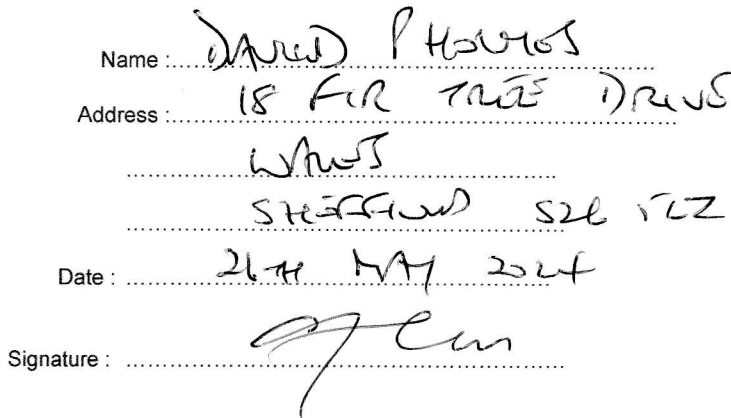 Name : DAVID P HOLMES
Address : 18 FIR TREE DRIVE
WALES
SHEFFIELD S26
Date : 26TH MAY 2024
Signature :